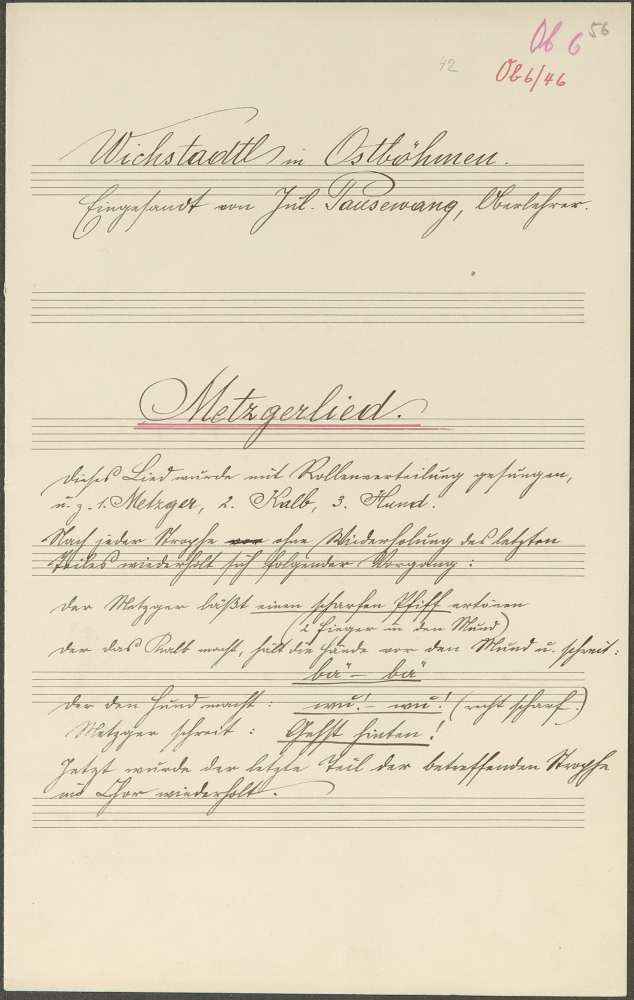 Ob 6 56
42 Ob6/46
Wichstadtl in Ostböhmen.
Eingesandt von Jul. Pausewang, Oberlehrer.
Metzgerlied.
Dieses Lied wurde mit Rollenverteilung gesungen,
u. z. 1. Metzger, 2. Kalb, 3. Hund.
Nach jeder Strophe vor ohne Wiederholung des letzten
Teiles wiederholt sich folgender Vorgang:
Der Metzger läßt einen scharfen Pfiff ertönen
(2 Finger in den Mund)
der das Kalb macht, hält die Hände vor den Mund u. schreit:
bä - bä
Der den Hund macht: wu! - wu! (recht scharf.)
Metzger schreit: Gehst hinten!
Jetzt wurde der letzte Teil der betreffenden Strophe
im Chor wiederholt.